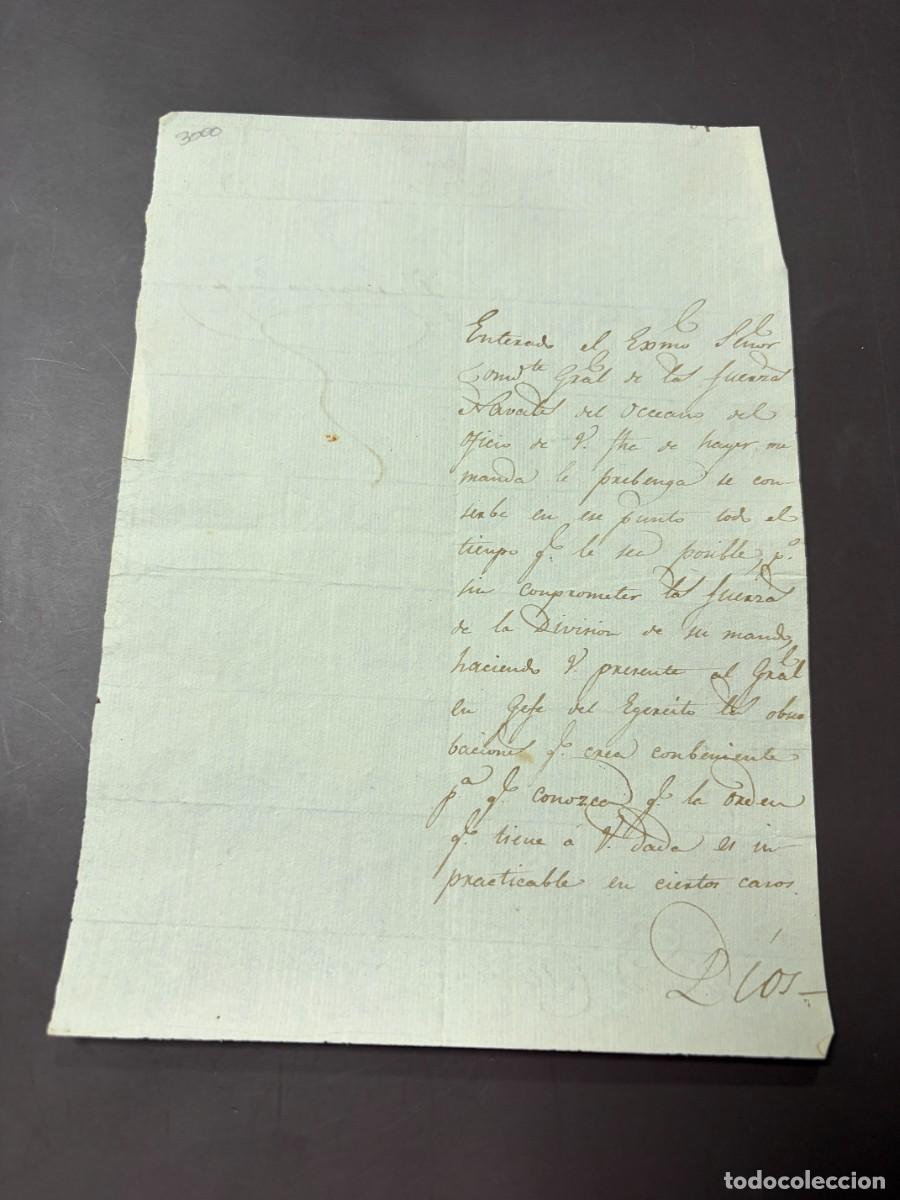 3000
Enterado el Exmo Señor
Comdte Gral de las fuerzas
Navales del Occeano del
oficio de V. fha de hayer, me
manda le prebenga se con-
serbe en ese punto todo el
tiempo q.e le sea posible, p.o
sin conprometer las fuerzas
de la Division de su mando,
haciendo V. presente al Gral
en Gefe del Egercito las obser
baciones q.e crea conbeniente
p.a q.e conozca q.e la orden
q.e tiene á V. dada es in-
practicable en ciertos casos.
Dios-
todocoleccion